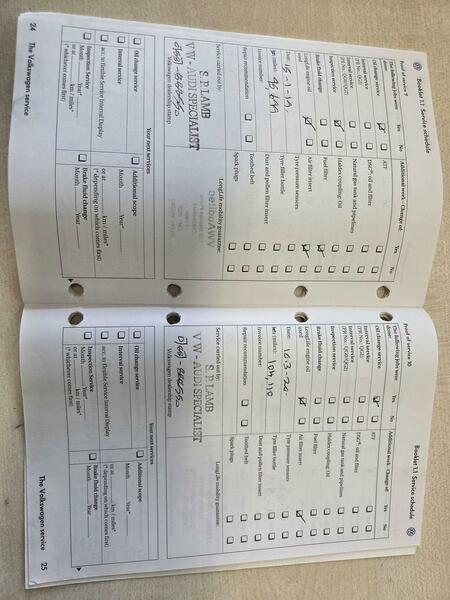 Booklet 1.1 Service schedule
Proof of service 9
The following jobs were done:
Yes
No
Additional work - Change of:
Yes
No
Oil change service
ATF
Interval service
(PR No. QG1)
DSG® oil and filter
Interval service
(PR No. QG0/QG2)
Natural gas tank and pipelines
Inspection service
Haldex coupling: Oil
Brake fluid change
Fuel filter
LongLife engine oil used
Air filter insert
Date: 15-1-19.
Tyre pressure sensors
km (miles): 95,699
Tyre filler bottle
Invoice number:
Dust and pollen filter insert
Repair recommendation
Toothed belt
Spark plugs
Service carried out by:
LongLife mobility guarantee:
S.P. LAMB
VW-AUDI SPECIALIST
Volkswagen dealership stamp
Your next services
Oil change service
Additional scope
Interval service
Month
Year*
or at
km / miles*
acc. to flexible Service Interval Display
(* depending on which comes first)
Inspection Service
Brake fluid change
Month
Year*
Month
Year
or at
km / miles*
(* whichever comes first)
24
The Volkswagen service
Booklet 1.1 Service schedule
Proof of service 10
The following jobs were done:
Yes
No
Additional work - Change of:
Yes
No
Oil change service
ATF
Interval service
(PR No. QG1)
DSG® oil and filter
Interval service
(PR No. QG0/QG2)
Natural gas tank and pipelines
Inspection service
Haldex coupling: Oil
Brake fluid change
Fuel filter
LongLife engine oil used
Air filter insert
Date: 10.3.20.
Tyre pressure sensors
km (miles): 104,110
Tyre filler bottle
Invoice number:
Dust and pollen filter insert
Repair recommendation
Toothed belt
Spark plugs
Service carried out by:
LongLife mobility guarantee:
S.P. LAMB
VW-AUDI SPECIALIST
Volkswagen dealership stamp
Your next services
Oil change service
Additional scope
Interval service
Month
Year*
or at
km / miles*
acc. to flexible Service Interval Display
(* depending on which comes first)
Inspection Service
Brake fluid change
Month
Year*
Month
Year
or at
km / miles*
(* whichever comes first)
The Volkswagen service
25